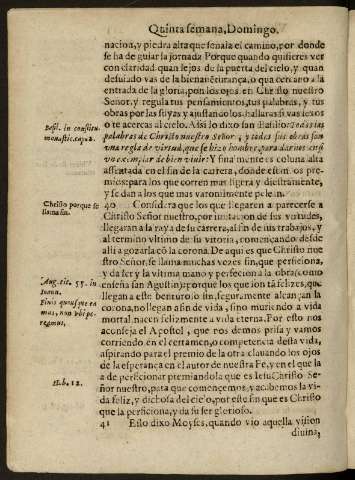 Quinta semana, Domingo.
nacion, y piedra alta que señala el camino, por donde
se ha de guiar la jornada Porque quando quisieres ver
con claridad quan lejos de la puerta del cielo, y quan
desuiado vas de la bienauẽturança, o quã cercano a la
entrada de la gloria, pon los ojos en Christo nuestro
Señor, y regula tus pensamientos, tus palabras, y tus
obras por las suyas y ajustandolos hallaras si vas lexos
o te acercas al cielo. Assi lo dixo san Basilio: Todas las
palabras de Christo nuestro Señor, y todas sus obras son
vna regla de virtud, que se hizo hombre, para darnos en si
vn exemplar de bien viuir: Y finalmente es coluna alta
assentada en el fin de la carrera, donde estan los pre-
mios: para los que corren mas ligera y diestramente,
y se dan a los que mas varonilmente pelean.
40 Considera que los que llegaren a parecerse a
Christo Señor nuestro, por imitacion de sus virtudes,
llegaran a la raya de su carrera, al fin de sus trabajos, y
al termino vltimo de su vitoria, començando desde
alli a gozar la cõ la corona. De aqui es que Christo nue
stro Señor se llama muchas vezes fin, que perficiona,
y da ser y la vltima mano y perfeciona la obra (como
enseña san Agustin) porque los que son tã felizes, que
llegan a este venturoso fin, seguramente alcançan la
corona, no llegan a fin de vida, sino muriendo a vida
mortal, nacen felizmente a vida eterna. Por esto nos
aconseja el Apostol, que nos demos prisa y vamos
corriendo en el certamen, o competencia desta vida,
aspirando para el premio de la otra clauando los ojos
de la esperança en el autor de nuestra Fe, y en el que la
a de perficionar premiandola que es Iesu Christo Se-
ñor nuestro, para que començemos, y acabemos la vi-
da feliz, y dichosa del cielo, por este fin que es Christo
que la perficiona, y da su ser glorioso.
41 Esto dixo Moyses, quando vio aquella vision
diuina,
Basil. in constitu.
monastic. cap. 2.
Christo porque se
llama fin.
Aug. tit. 55. in
Ioann.
Finis quousque ea
mus, non vbi pe-
reamus.
Heb. 12.